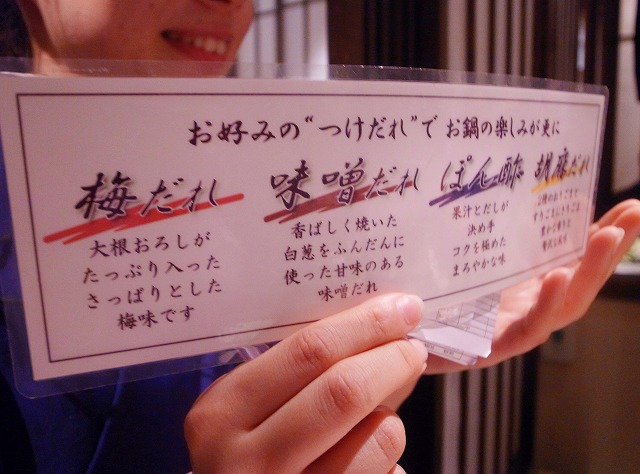 お好みの“つけだれ”で お鍋の楽しみが更に
梅だれ
大根おろしが
たっぷり入った
さっぱりとした
梅味です
味噌だれ
香ばしく焼いた
白葱をふんだんに
使った甘味のある
味噌だれ
ぽん酢
果汁とだしが
決め手
コクを極めた
まろやかな味
胡麻だれ